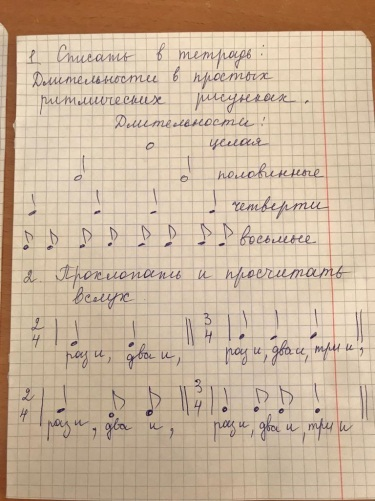 1. Списать в тетрадь:
Длительности в простых
ритмических рисунках.
Длительности:
целая
половинные
четверти
восьмые
2. Прохлопать и просчитать
вслух
2 3
4 4
раз и, два и, раз и, два и, три и,
2 3
4 4
раз и, два и, раз и, два и, три и